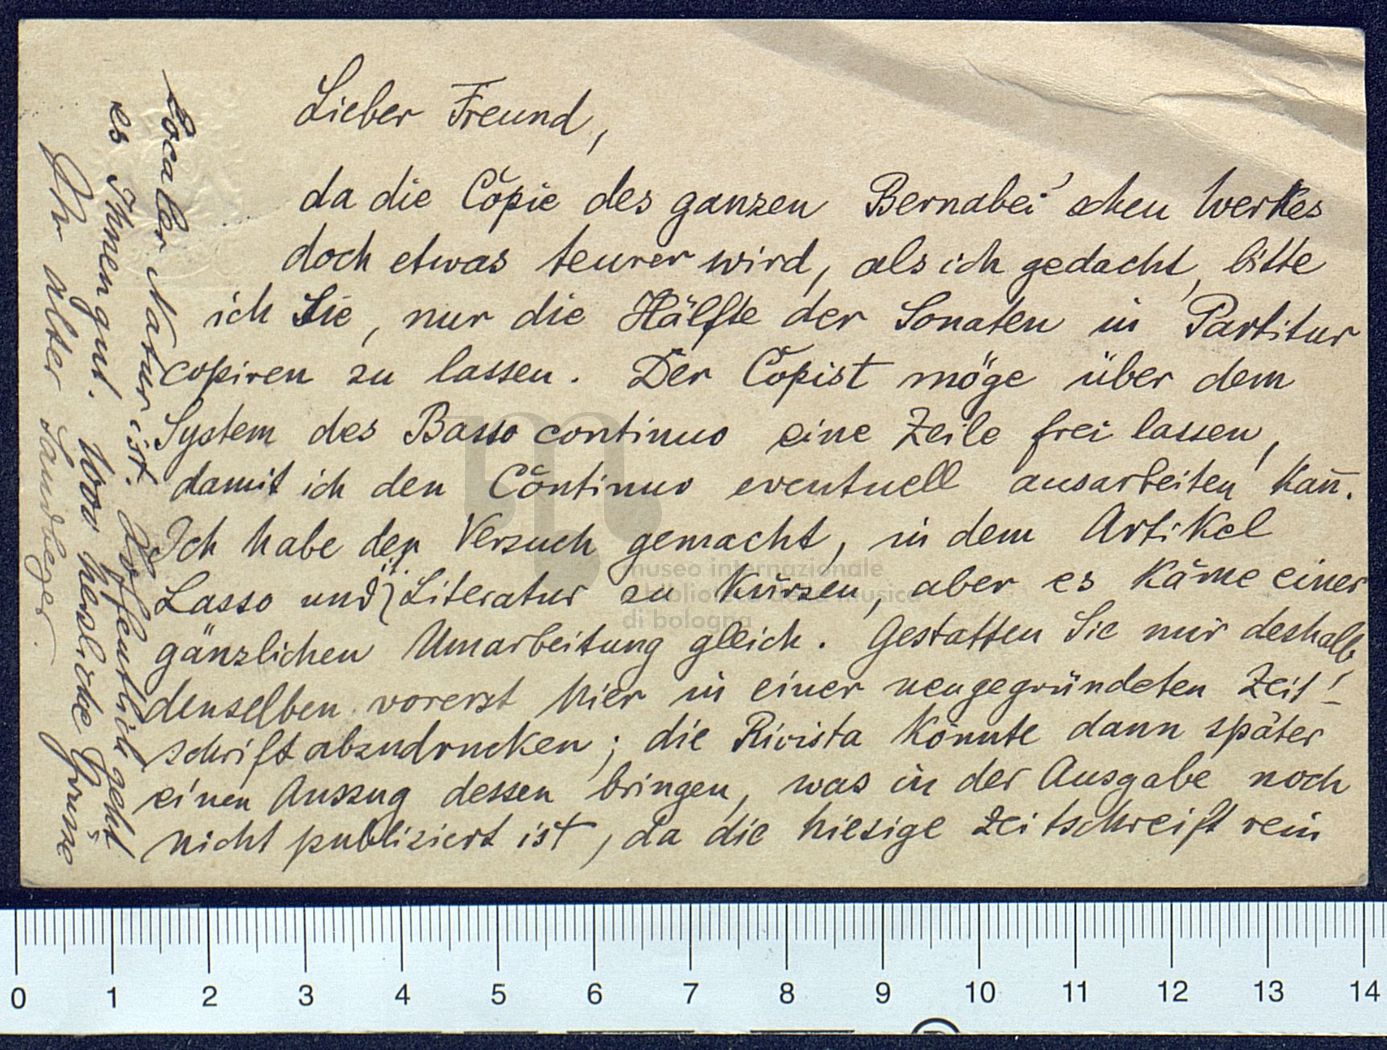 Lieber Freund,
da die Copie des ganzen Bernabei'schen Werkes
doch etwas teurer wird, als ich gedacht, bitte
ich Sie, nur die Hälfte der Sonaten in Partitur
copiren zu lassen. Der Copist möge über dem
System des Basso continuo eine Zeile frei lassen,
damit ich den Continuo eventuell ausarbeiten kan̄.
Ich habe den Versuch gemacht, in dem Artikel
Lasso und Literatur zu kürzen, aber es käme einer
gänzlichen Umarbeitung gleich. Gestatten Sie mir deshalb
denselben vorerst hier in einer neugegründeten Zeit-
schrift abzudrucken; die Rivista könnte dann später
einen Auszug dessen bringen, was in der Ausgabe noch
nicht publiziert ist, da die hiesige Zeitschreift rein
localer Natur ist. Hoffentlich geht
es Ihnen gut. Von herzliche Grüsse
Ihr alter Sandberger.
museo internazionale
e biblioteca della musica
di bologna
0 1 2 3 4 5 6 7 8 9 10 11 12 13 14